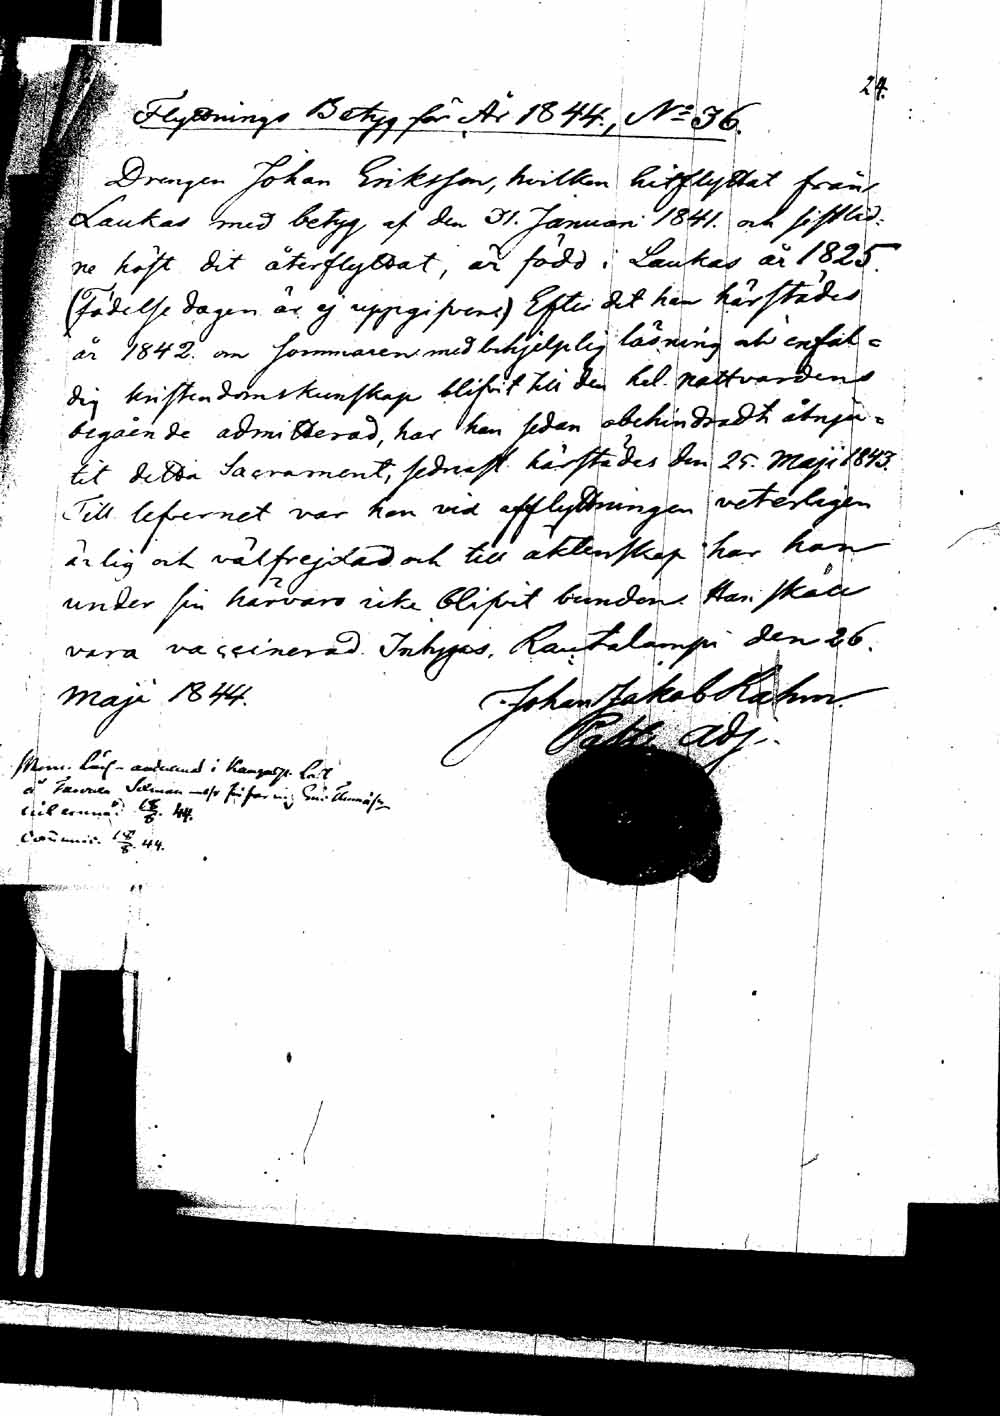 24.
Flyttnings Betyg för År 1844, No 36.
Drengen Johan Eriksson, hvilken hitflyttat från
Laukas med betyg af den 31. Januari 1841. och sistlid-
ne höst dit återflyttat, är född i Laukas år 1825.
(Födelse dagen är ej uppgifven) Efter det han härstädes
år 1842. om sommaren med behjelplig läsning och enfal=
dig kristendomskunskap blifvit till den hel. nattvardens
begående admitterad, har han sedan obehindradt åtnju=
tit detta Sacrament, sednast härstädes den 25. Maji 1843.
Till lefvernet var han vid afflyttningen veterligen
ärlig och välfrejdad och till äktenskap har han
under sin härvaro icke blifvit bunden. Han skall
vara vaccinerad. Intygas, Rautalampi den 26.
Maji 1844.
Johan Jakob Rahm
Past. Adj.
i
18/8. 44.
18/8. 44.